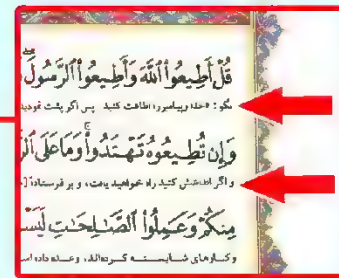 قُلْ أَطِيعُوا۟ ٱللَّهَ وَأَطِيعُوا۟ ٱلرَّسُولَ
بگو: «خدا و پیامبر را اطاعت کنید پس اگر پشت نمودید
وَإِن تُطِيعُوهُ تَهْتَدُوا۟ۚ وَمَا عَلَى
و اگر اطاعتش کنید راه خواهید یافت، و بر فرستادهٔ
مِنكُمْ وَعَمِلُوا۟ ٱلصَّـٰلِحَـٰتِ
و کارهای شایسته کرده‌اند، وعده داده